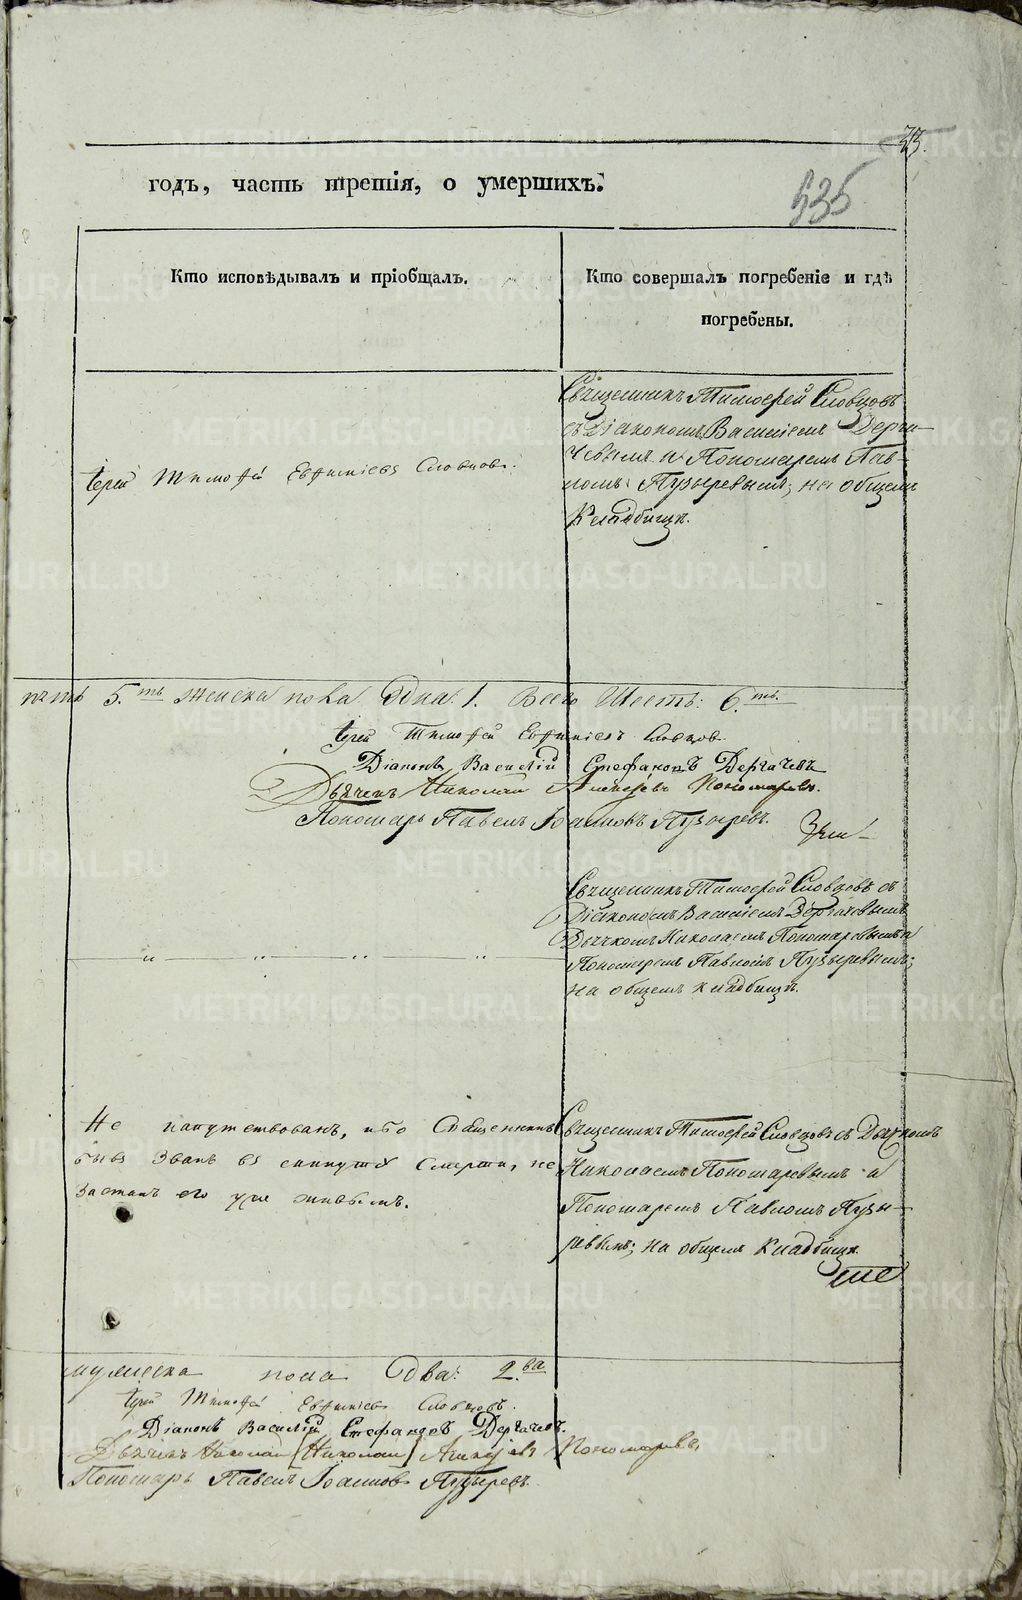 33.
535
годъ, часть третія, о умершихъ.
Кто исповѣдывалъ и пріобщалъ.
Кто совершалъ погребеніе и гдѣ
погребены.
Священникъ Тимофей Словцовъ
съ Діакономъ Василіемъ Дерга-
чевымъ и Пономаремъ Пав-
ломъ Пузыревымъ; на общемъ
Кладбищѣ.
Іерей Тимофей Евфиміевъ Словцовъ.
пять 5.ть женска пола Одна: 1. Всего Шесть: 6.ть.
Іерей Тимофей Евфиміевъ Словцов
Діаконъ Василій Стефановъ Дергачевъ
Дьячекъ Николай Алексѣевъ Пономаревъ.
Пономарь Павелъ Іоанновъ Пузыревъ.
Священникъ Тимофей Словцовъ съ
Діакономъ Василіемъ Дергачевымъ
Дьячкомъ Николаемъ Пономаревымъ и
Пономаремъ Павломъ Пузыревымъ;
на общемъ кладбищѣ.
Не напутствованъ, ибо Священникъ
бывъ званъ въ минуту смерти, не
засталъ его уже живымъ.
Священникъ Тимофей Словцовъ съ Дьячкомъ
Николаемъ Пономаревымъ и
Пономаремъ Павломъ Пузы-
ревымъ; на общемъ Кладбищѣ
мужеска пола Два: 2.ва
Іерей Тимофей Евфиміевъ Словцовъ.
Діаконъ Василій Стефановъ Дергачевъ.
Дьячекъ Николай (Николай) Алексѣевъ Пономаревъ.
Пономарь Павелъ Іоанновъ Пузыревъ.
METRIKI.GASO-URAL.RU